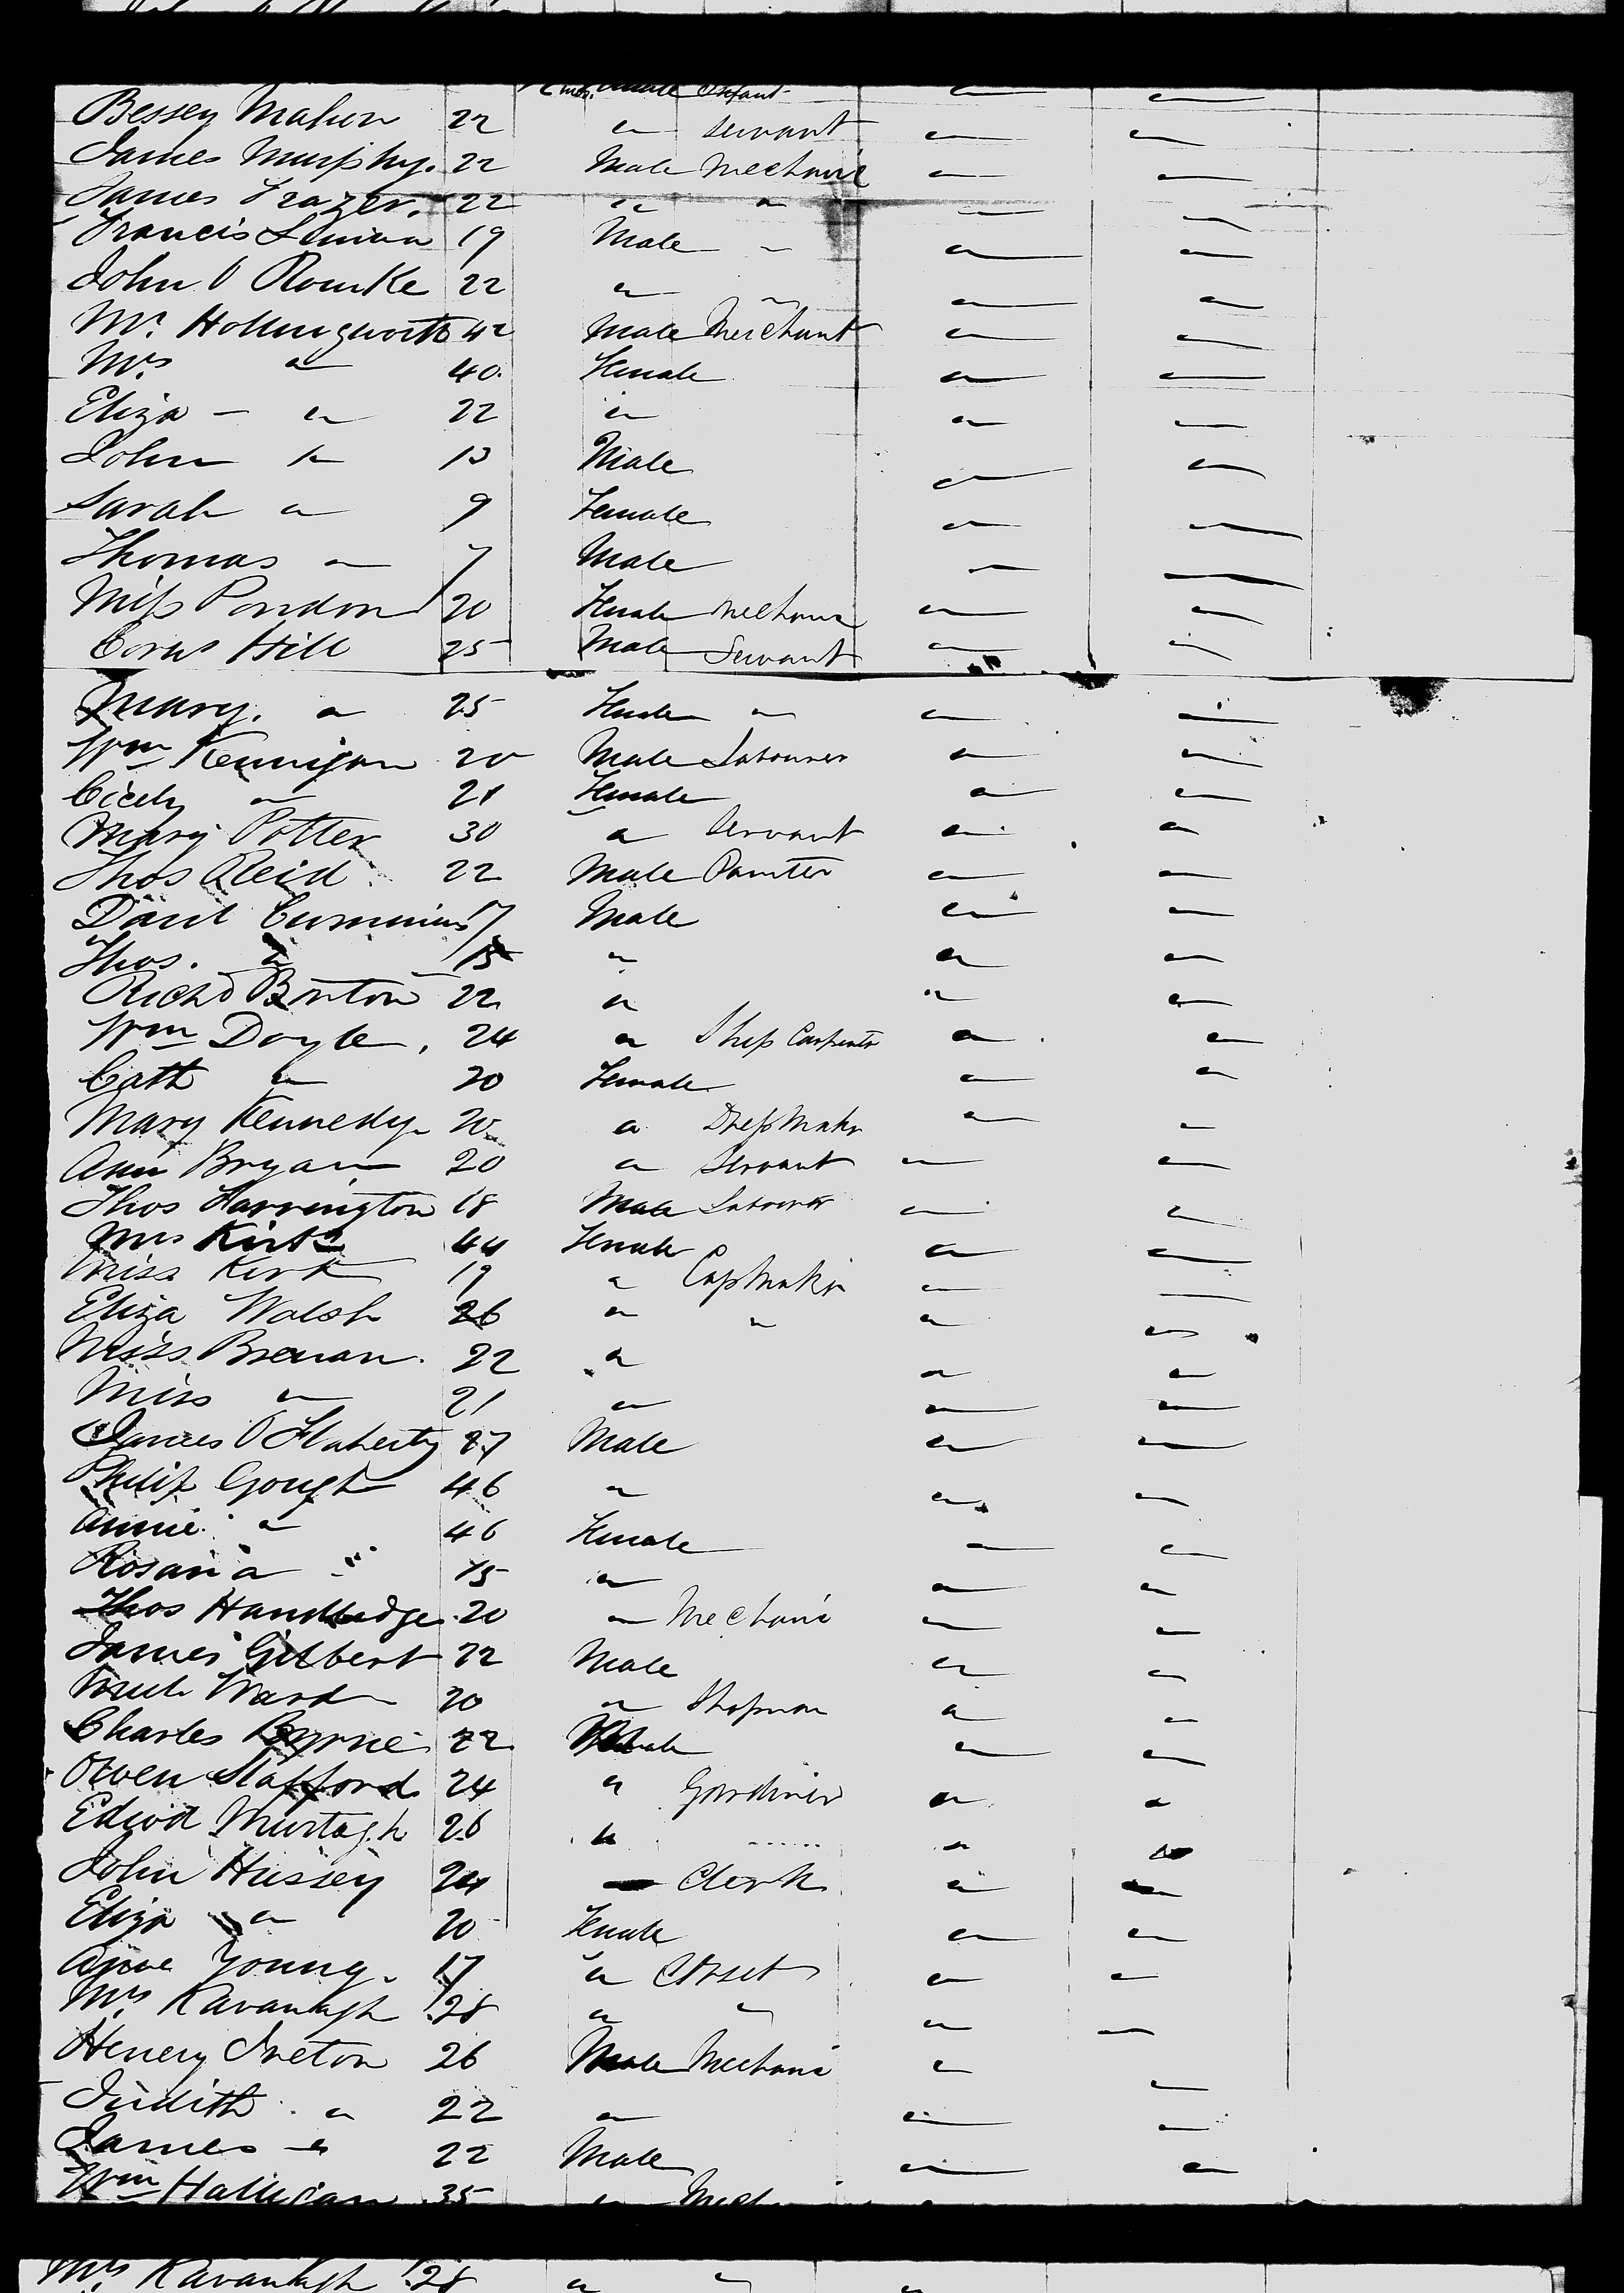 Infant
Bessey Mahon 22 " Servant " "
James Murphy. 22 Male Mechanic " "
James Frazer. 22 " " " "
Francis 19 Male " " "
John O Rourke 22 " " " "
Mr. Hollingsworth 42 Male Merchant " "
Mrs " 40. Female " "
Eliza - " 22 " " "
John " 13 Male " "
Sarah " 9 Female " "
Thomas " 7 Male " "
Miss Pondon 20 Female Mechanic " "
Hill 25 Male Servant " "
Mary. " 25 Female " " "
Wm Kennigan 20 Male Labourer " "
Cicely " 21 Female " "
Mary Potter 30 " Servant " "
Thos Reid 22 Male Painter " "
Danl Cummins 17 Male " "
Thos. " 15 " " "
Richd Borton 22 " " "
Wm Doyle, 24 " Ship Carpenter " "
Cath " 20 Female " "
Mary Kennedy 20 " Dress Maker " "
Ann Bryan 20 " Servant " "
Thos Harrington 18 Male Labourer " "
Mrs Kirk 44 Female " "
Miss Kirk 19 " Cap Maker " "
Eliza Walsh 26 " " " "
Miss Brenan. 22 " " "
Miss " 21 " " "
James O Flaherty 27 Male " "
Philip Gough 46 " " "
Annie " 46 Female " "
Rosanna " 15 " " "
Thos Handledge 20 " Mechanic " "
James Gilbert 22 Male " "
Ward 20 " Shopman " "
Charles Byrne 22 Male " "
Owen Stafford 24 " Gardiner " "
Edwd Murtagh 26 " " "
John Hussey 24 " Clerk " "
Eliza " 20 Female " "
Anne Young. 17 " Corset " "
Mrs Kavanagh 28 " " " "
Henery Ireton 26 Male Mechanic " "
Judith " 22 " " "
James " 22 Male " "
Wm Halligan 35 " "
Mrs Kavanagh 28 " " "